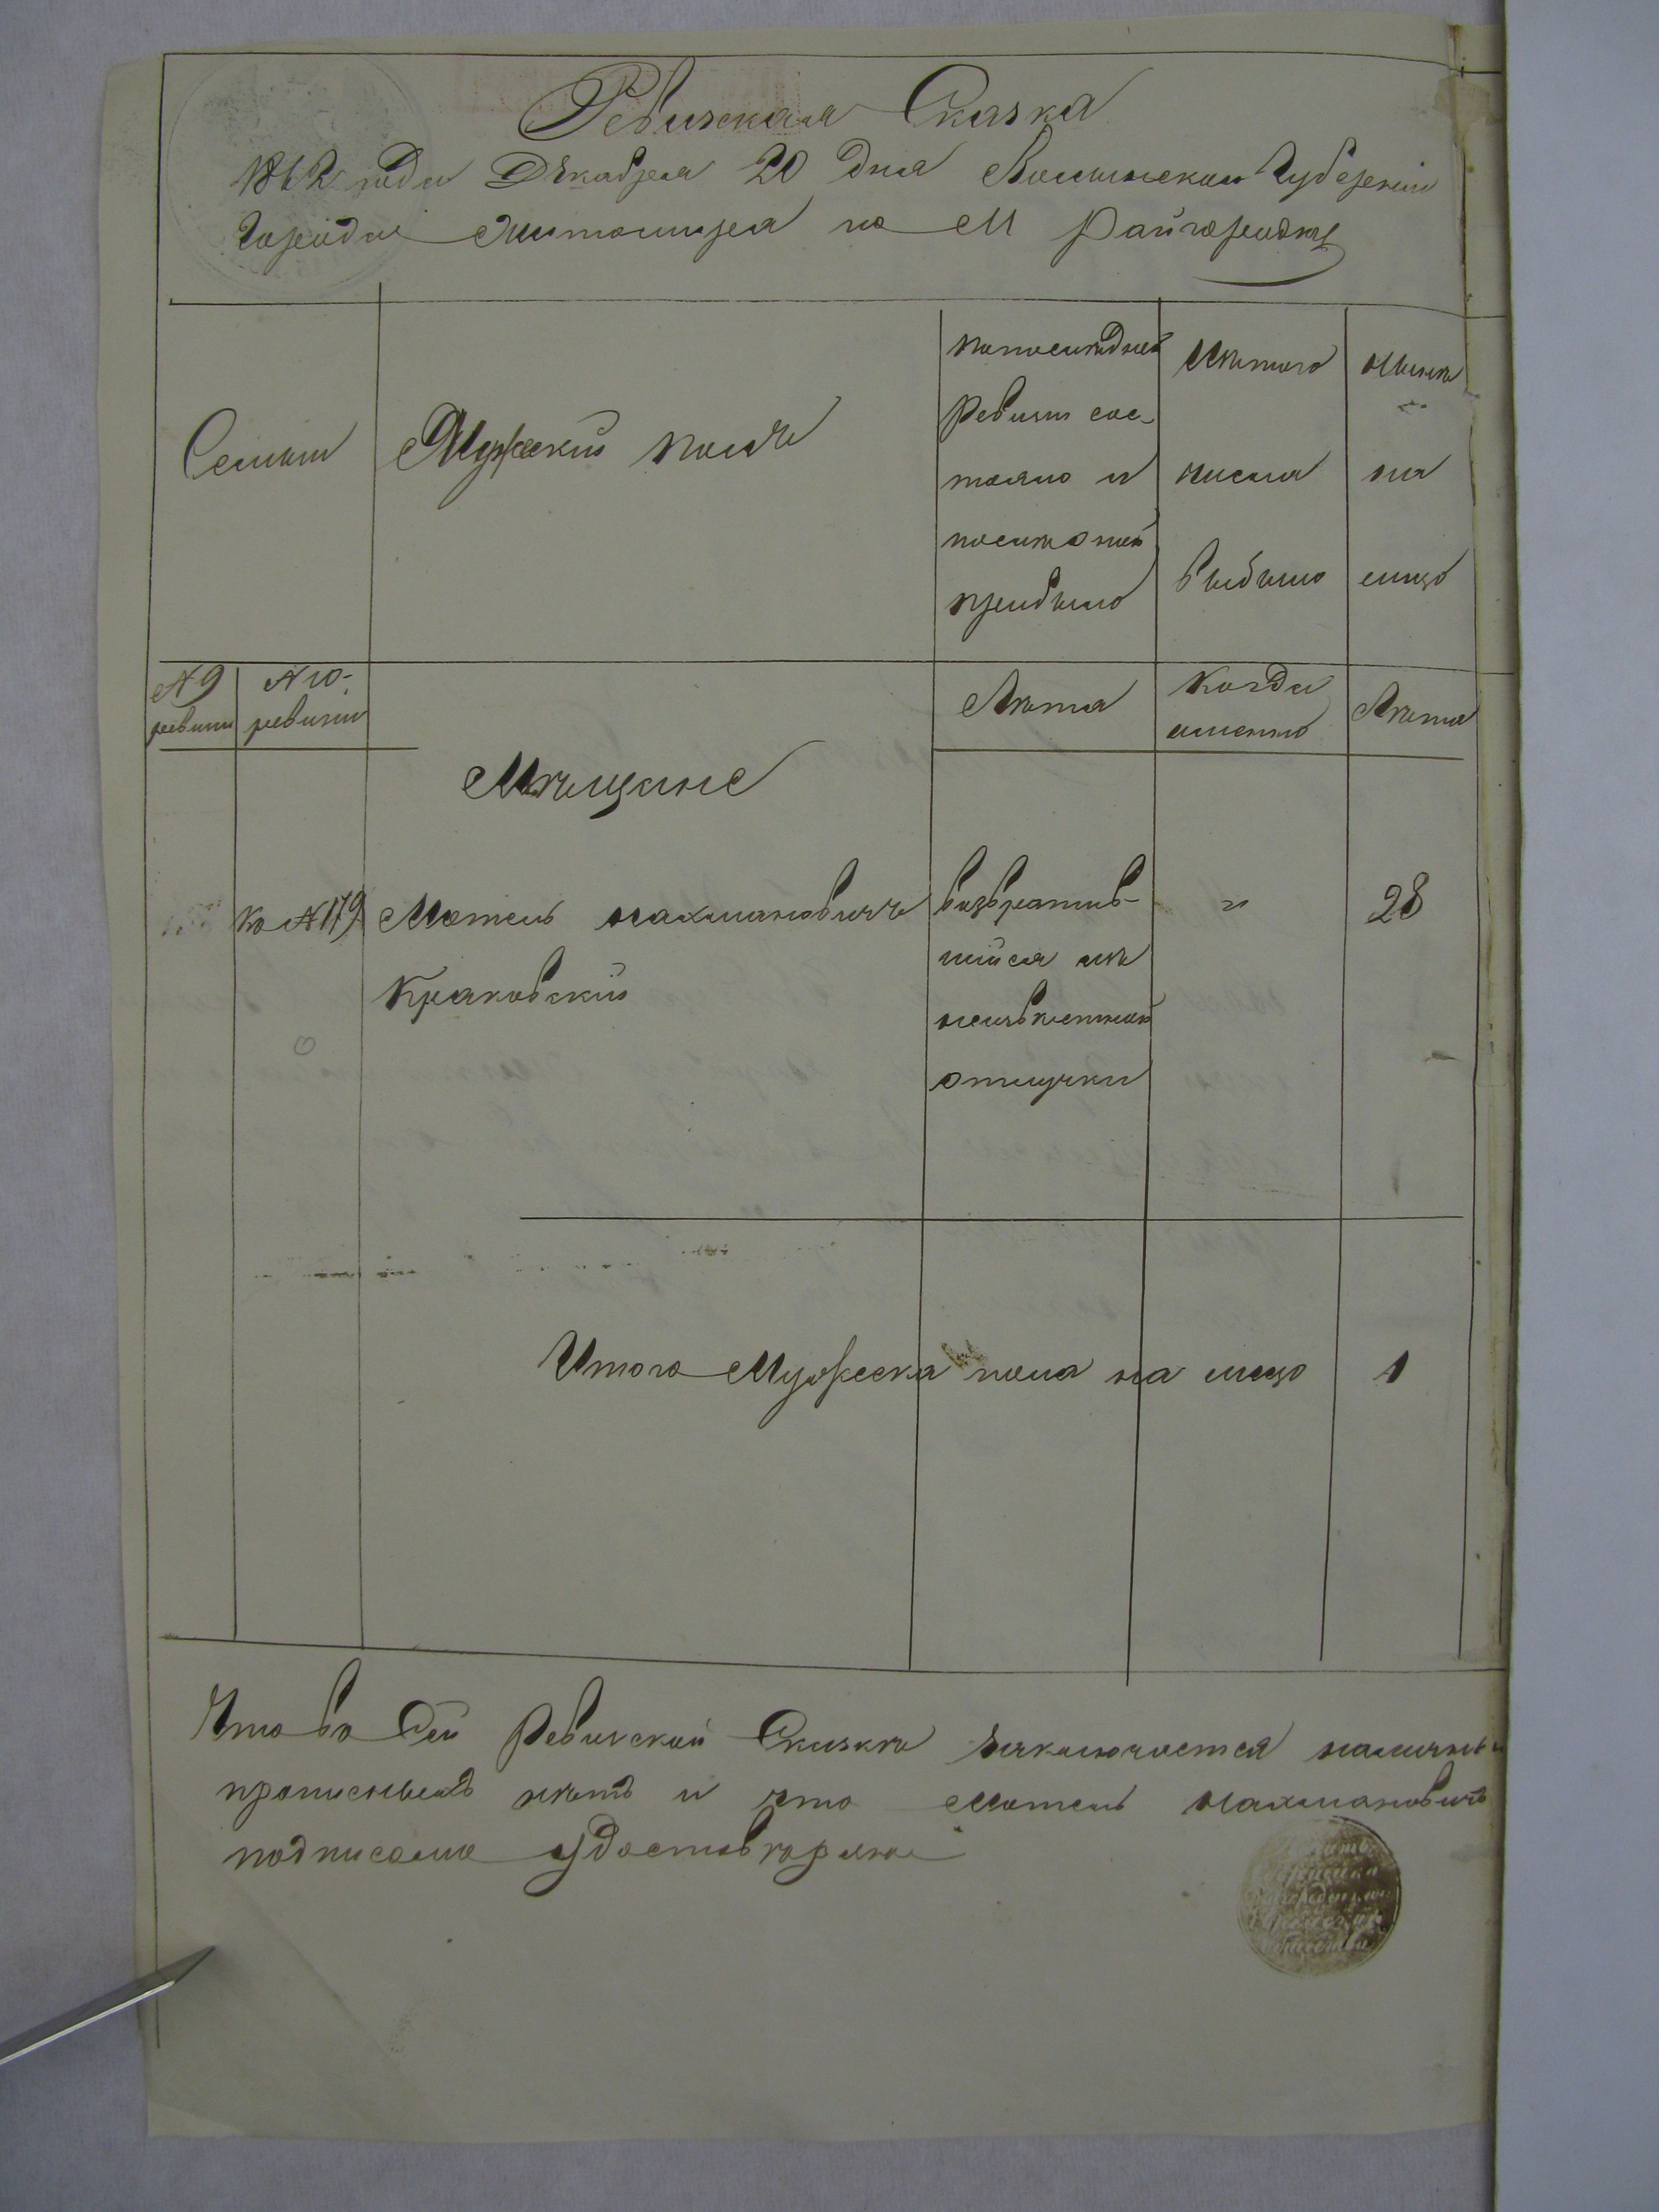 Ревизская Сказка
1862 года Декабря 20 дня Волынской Губернии
Города Житомира по М Райгородку
Семьи
Мужескій полъ
По последней
Ревизіи сос-
тояло и
после оной
прибыло
Изъ того
числа
выбыло
Нынѣ
на
лицо
№ 9
ревизіи
№ 10
ревизіи
Лѣта
Когда
именно
Лѣта
Мѣщане
Ко № 179
Мотель Нахмановичъ
Краковскій
Возвратив-
шійся изъ
неизвѣстной
отлучки
"
28
Итого Мужеска пола на лицо 1
Что во Сей Ревизской Сказкѣ заключается
прописныхъ нѣтъ и что Мотель Нахмановичъ
подписомо удостовѣряю